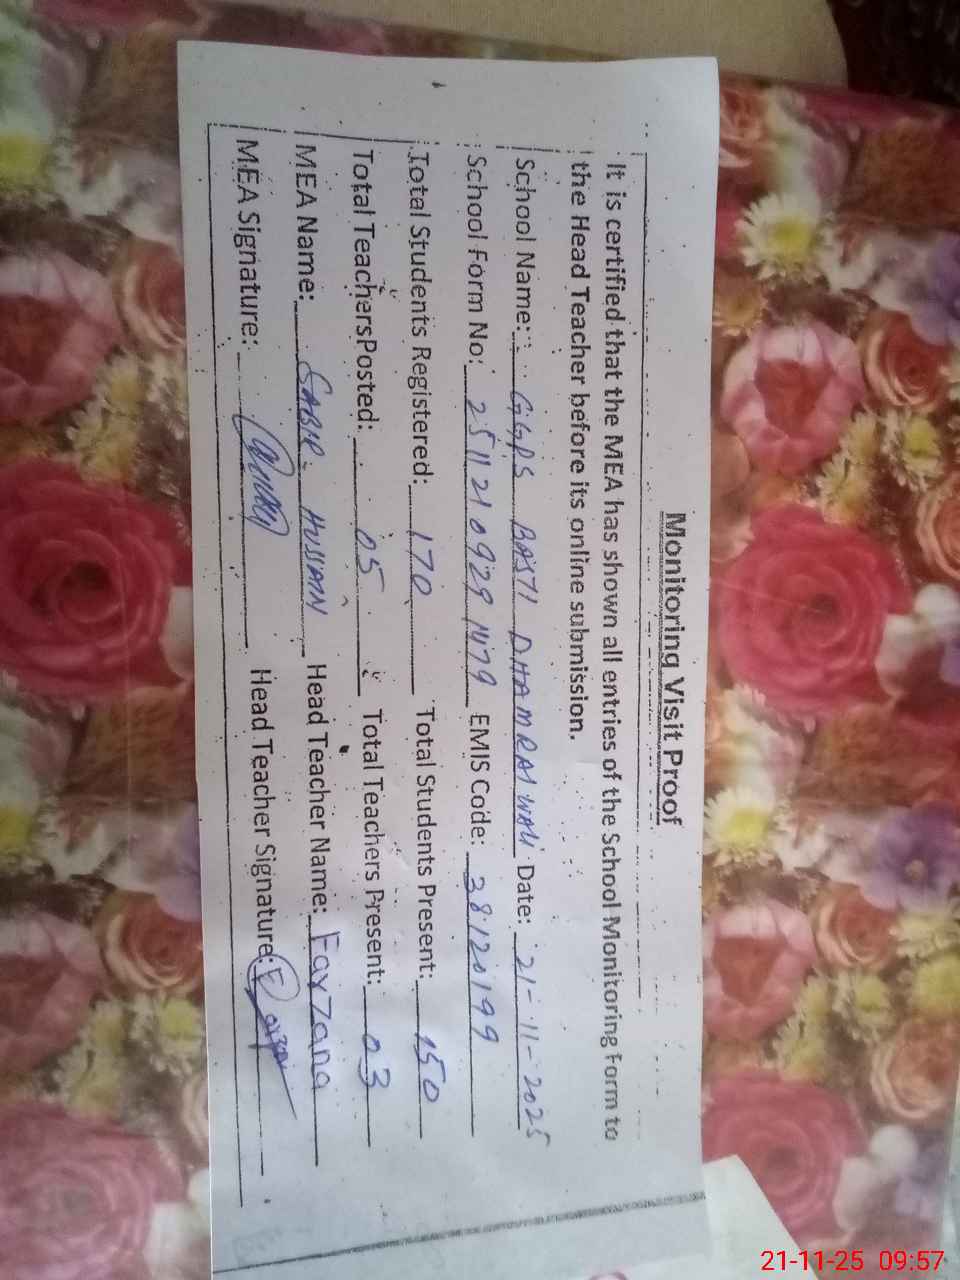 Monitoring Visit Proof
It is certified that the MEA has shown all entries of the School Monitoring Form to
the Head Teacher before its online submission.
School Name: GGPS BASTI DHAMRAI WALI Date: 21-11-2025
School Form No: 25112109291479 EMIS Code: 38120199
Total Students Registered: 170 Total Students Present: 150
Total Teachers Posted: 05 Total Teachers Present: 03
MEA Name: SABIR HUSSAIN Head Teacher Name: Farzana
MEA Signature: Head Teacher Signature:
21-11-25 09:57